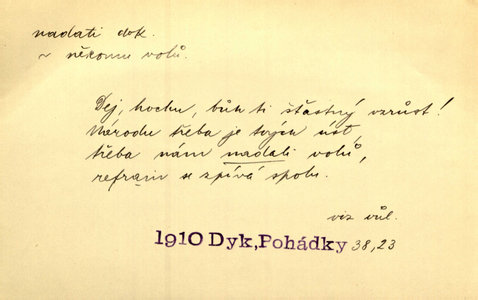 nadati dok.
~ někomu volů.
Dej, hochu, bůh ti šťastný vzrůst!
Národu třeba je tvých úst,
třeba nám nadati volů,
refrain se zpívá spolu.
viz vůl.
1910 Dyk, Pohádky 38,23